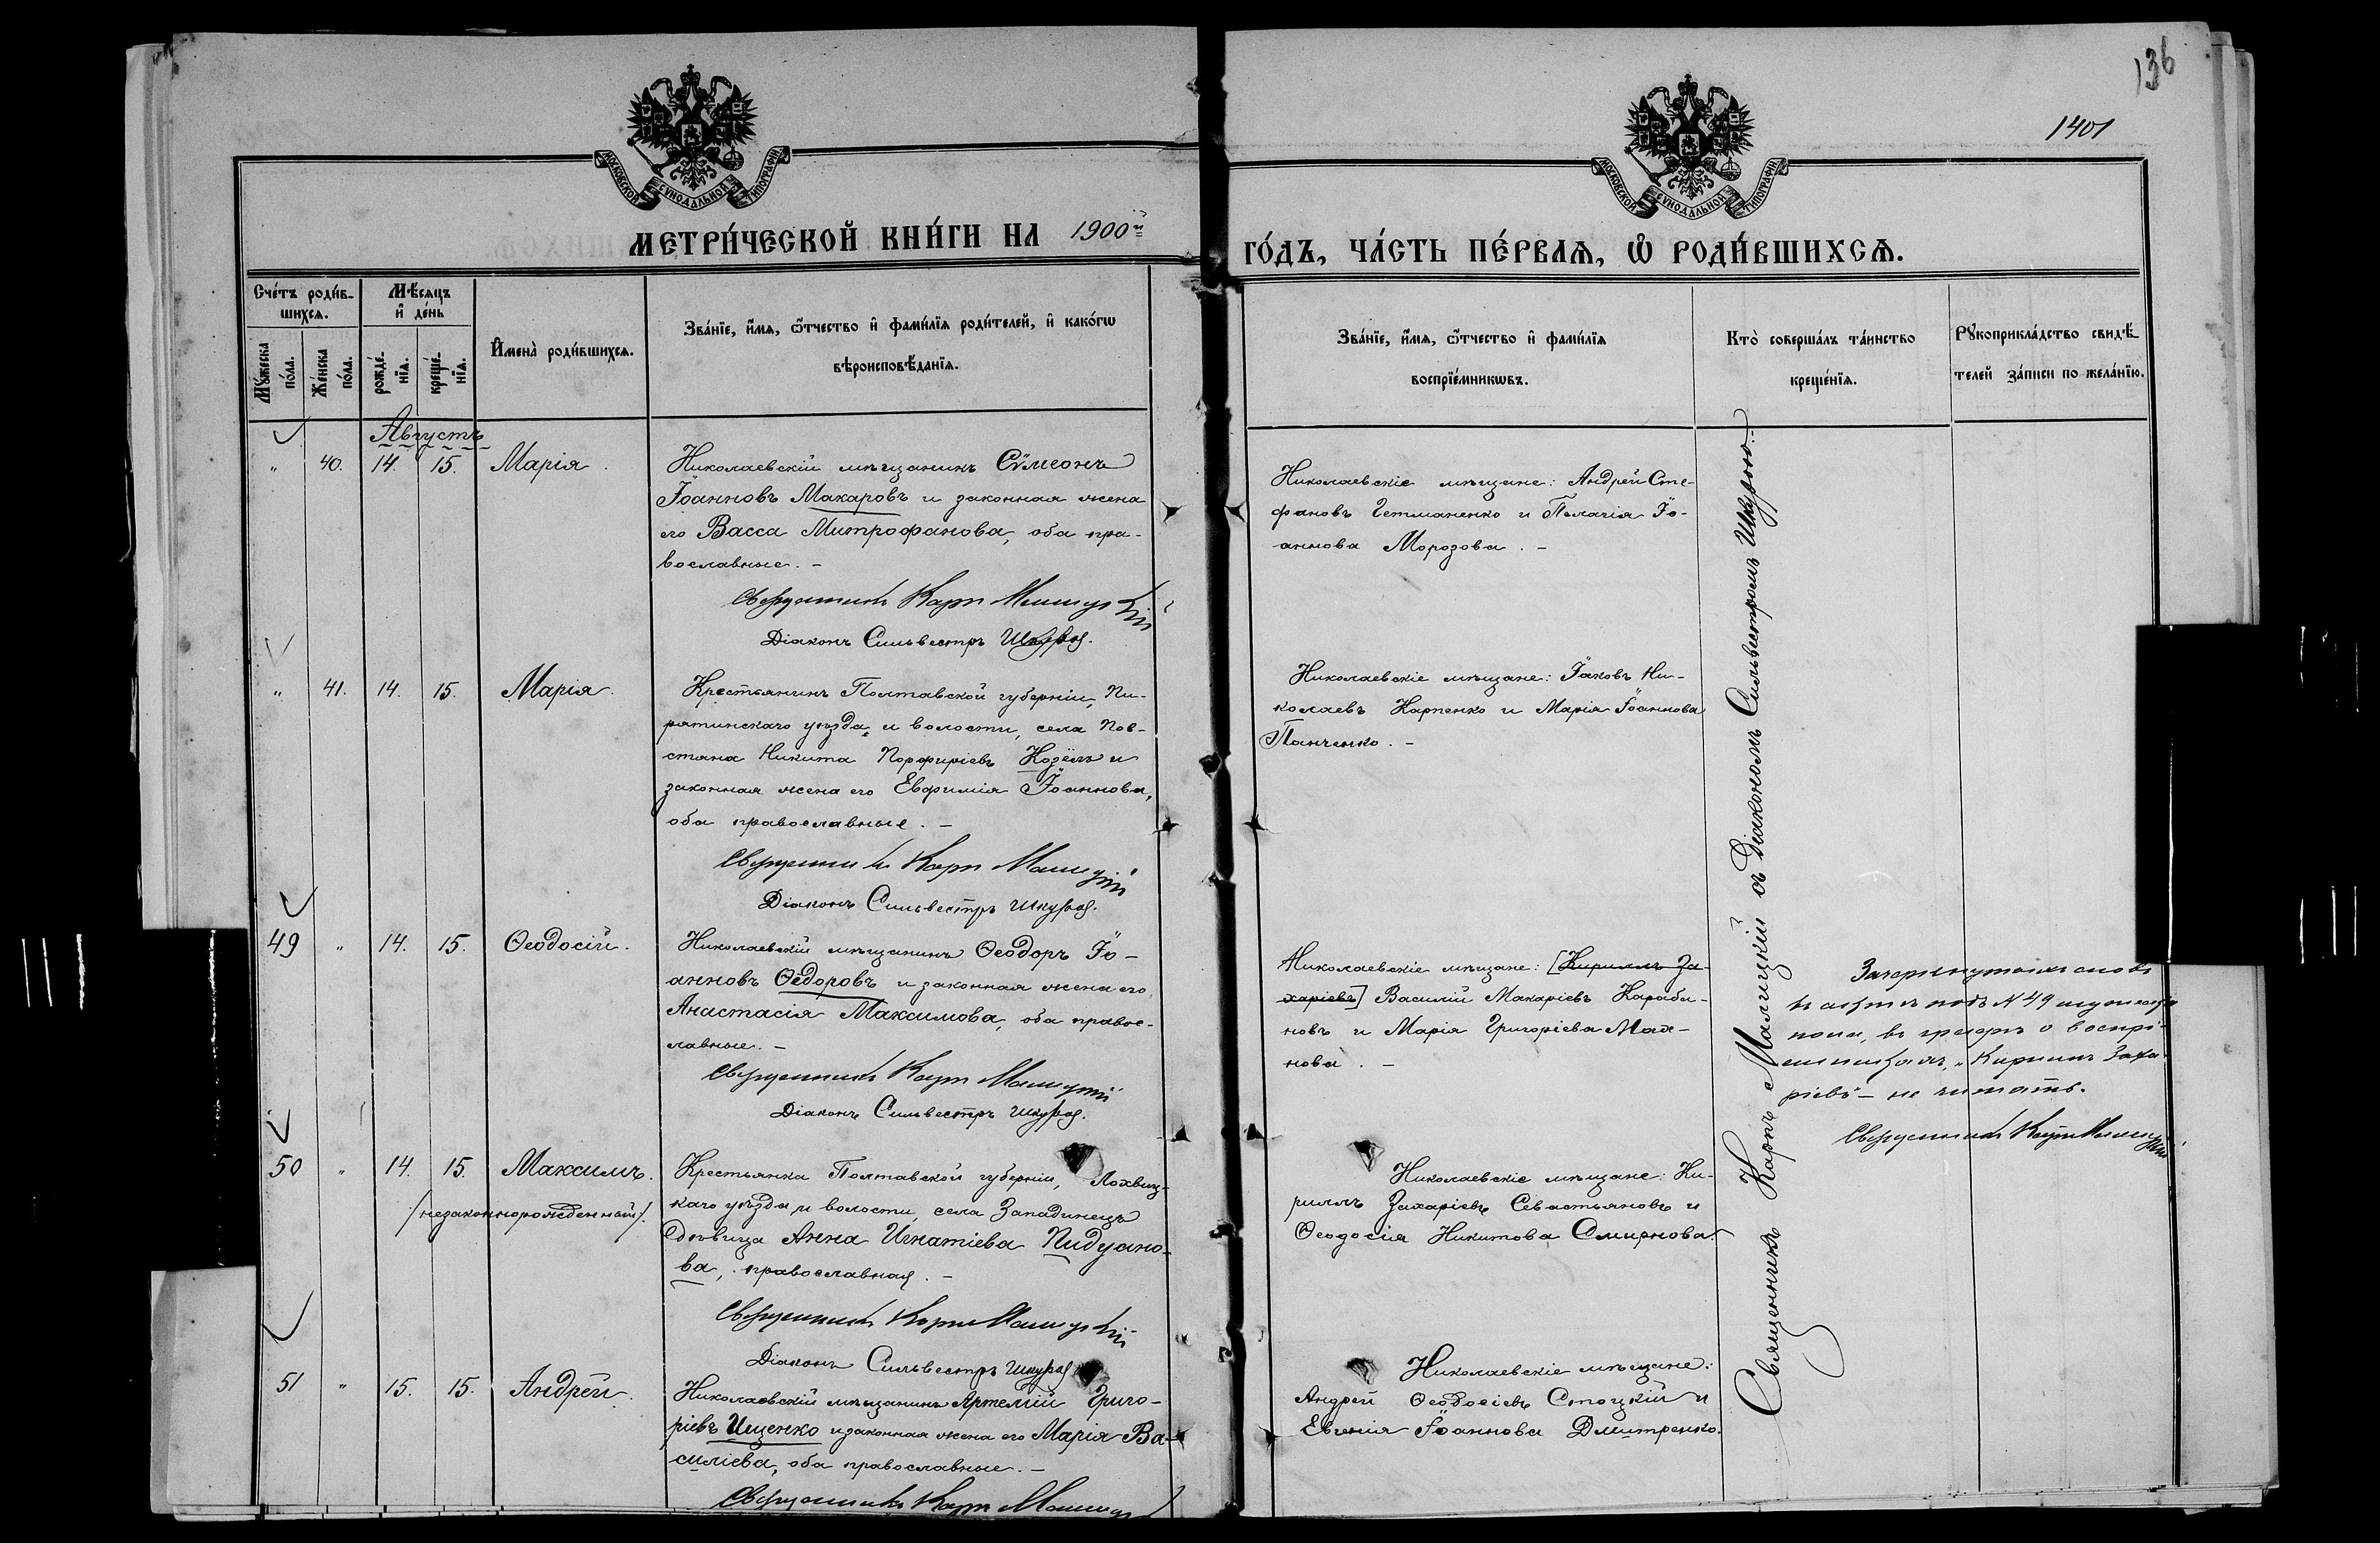 136
1401
МОСКОВСКОЙ СѴНОДАЛЬНОЙ ТИПОГРАФІИ
МОСКОВСКОЙ СѴНОДАЛЬНОЙ ТИПОГРАФІИ
МЕТРИ́ЧЕСКОЙ КНИ́ГИ НА 1900й
ГО́ДЪ, ЧА́СТЬ ПЕ́РВАѦ, Ѡ҆ РОДИ́ВШИХСѦ.
Сче́тъ роди́в-
шихсѧ.
Мѣ́сѧцъ
и҆ де́нь
Мꙋ́жеска
по́ла.
Же́нска
по́ла.
рожде́-
нїѧ.
креще́-
нїѧ.
И҆мена̀ роди́вшихсѧ.
Зва́нїе, и҆́мѧ, ѻ҆́тчество и҆ фами́лїѧ роди́телей, и҆ како́гѡ
вѣроисповѣ́данїѧ.
Зва́нїе, и҆́мѧ, ѻ҆́тчество и҆ фами́лїѧ
воспрїе́мникѡвъ.
Кто̀ соверша́лъ та́инство
креще́нїѧ.
Рꙋкоприкла́дство свидѣ́-
телей за́писи по жела́нїю.
Августъ
" 40. 14. 15. Марія.
Николаевскій мѣщанинъ Сѵмеонъ
Іоанновъ Макаровъ и законная жена
его Васса Митрофанова, оба пра-
вославные. –
Священникъ Карпъ Малицкій
Діаконъ Сильвестръ Шкура.
Николаевскіе мѣщане: Андрей Сте-
фановъ Гетманенко и Пелагія Іо-
аннова Морозова. –
" 41. 14. 15. Марія.
Крестьянинъ Полтавской губерніи, Пи-
рятинскаго уѣзда и волости, села Пов-
стина Никита Порфиріевъ Козёлъ и
законная жена его Евфимія Іоаннова,
оба православные. –
Священникъ Карпъ Малицкій
Діаконъ Сильвестръ Шкура.
Николаевскіе мѣщане: Іаковъ Ни-
колаевъ Карпенко и Марія Іоаннова
Панченко. –
49 " 14. 15. Ѳеодосій.
Николаевскій мѣщанинъ Ѳеодоръ Іо-
анновъ Ѳёдоровъ и законная жена его
Анастасія Максимова, оба правос-
лавные. –
Священникъ Карпъ Малицкій
Діаконъ Сильвестръ Шкура.
Николаевскіе мѣщане: [Кириллъ За-
харіевъ] Василій Макаріевъ Караба-
новъ и Марія Григоріева Мах-
нова. –
Зачеркнутыхъ словъ
въ актѣ подъ № 49 мужеска
пола, въ графѣ о воспрі-
емникахъ, „Кириллъ Заха-
ріевъ" – не читать.
Священникъ Карпъ Малицкій
50 " 14. 15. Максимъ.
/незаконнорожденный/.
Крестьянка Полтавской губерніи, Лохвиц-
каго уѣзда и волости, села Западинецъ
дѣвица Анна Игнатіева Пидуано-
ва, православная. –
Священникъ Карпъ Малицкій
Діаконъ Сильвестръ Шкура
Николаевскіе мѣщане: Ки-
риллъ Захаріевъ Севастьяновъ и
Ѳеодосія Никитова Смирнова.
51 " 15. 15. Андрей.
Николаевскій мѣщанинъ Артемій Григо-
ріевъ Ищенко и законная жена его Марія Ва-
силіева, оба православные. –
Священникъ Карпъ Малицкій
Николаевскіе мѣщане:
Андрей Ѳеодосіевъ Стоцкій и
Евгенія Іоаннова Дмитренко.
Священникъ Карпъ Малицкій съ Діакономъ Сильвестромъ Шкурою. –